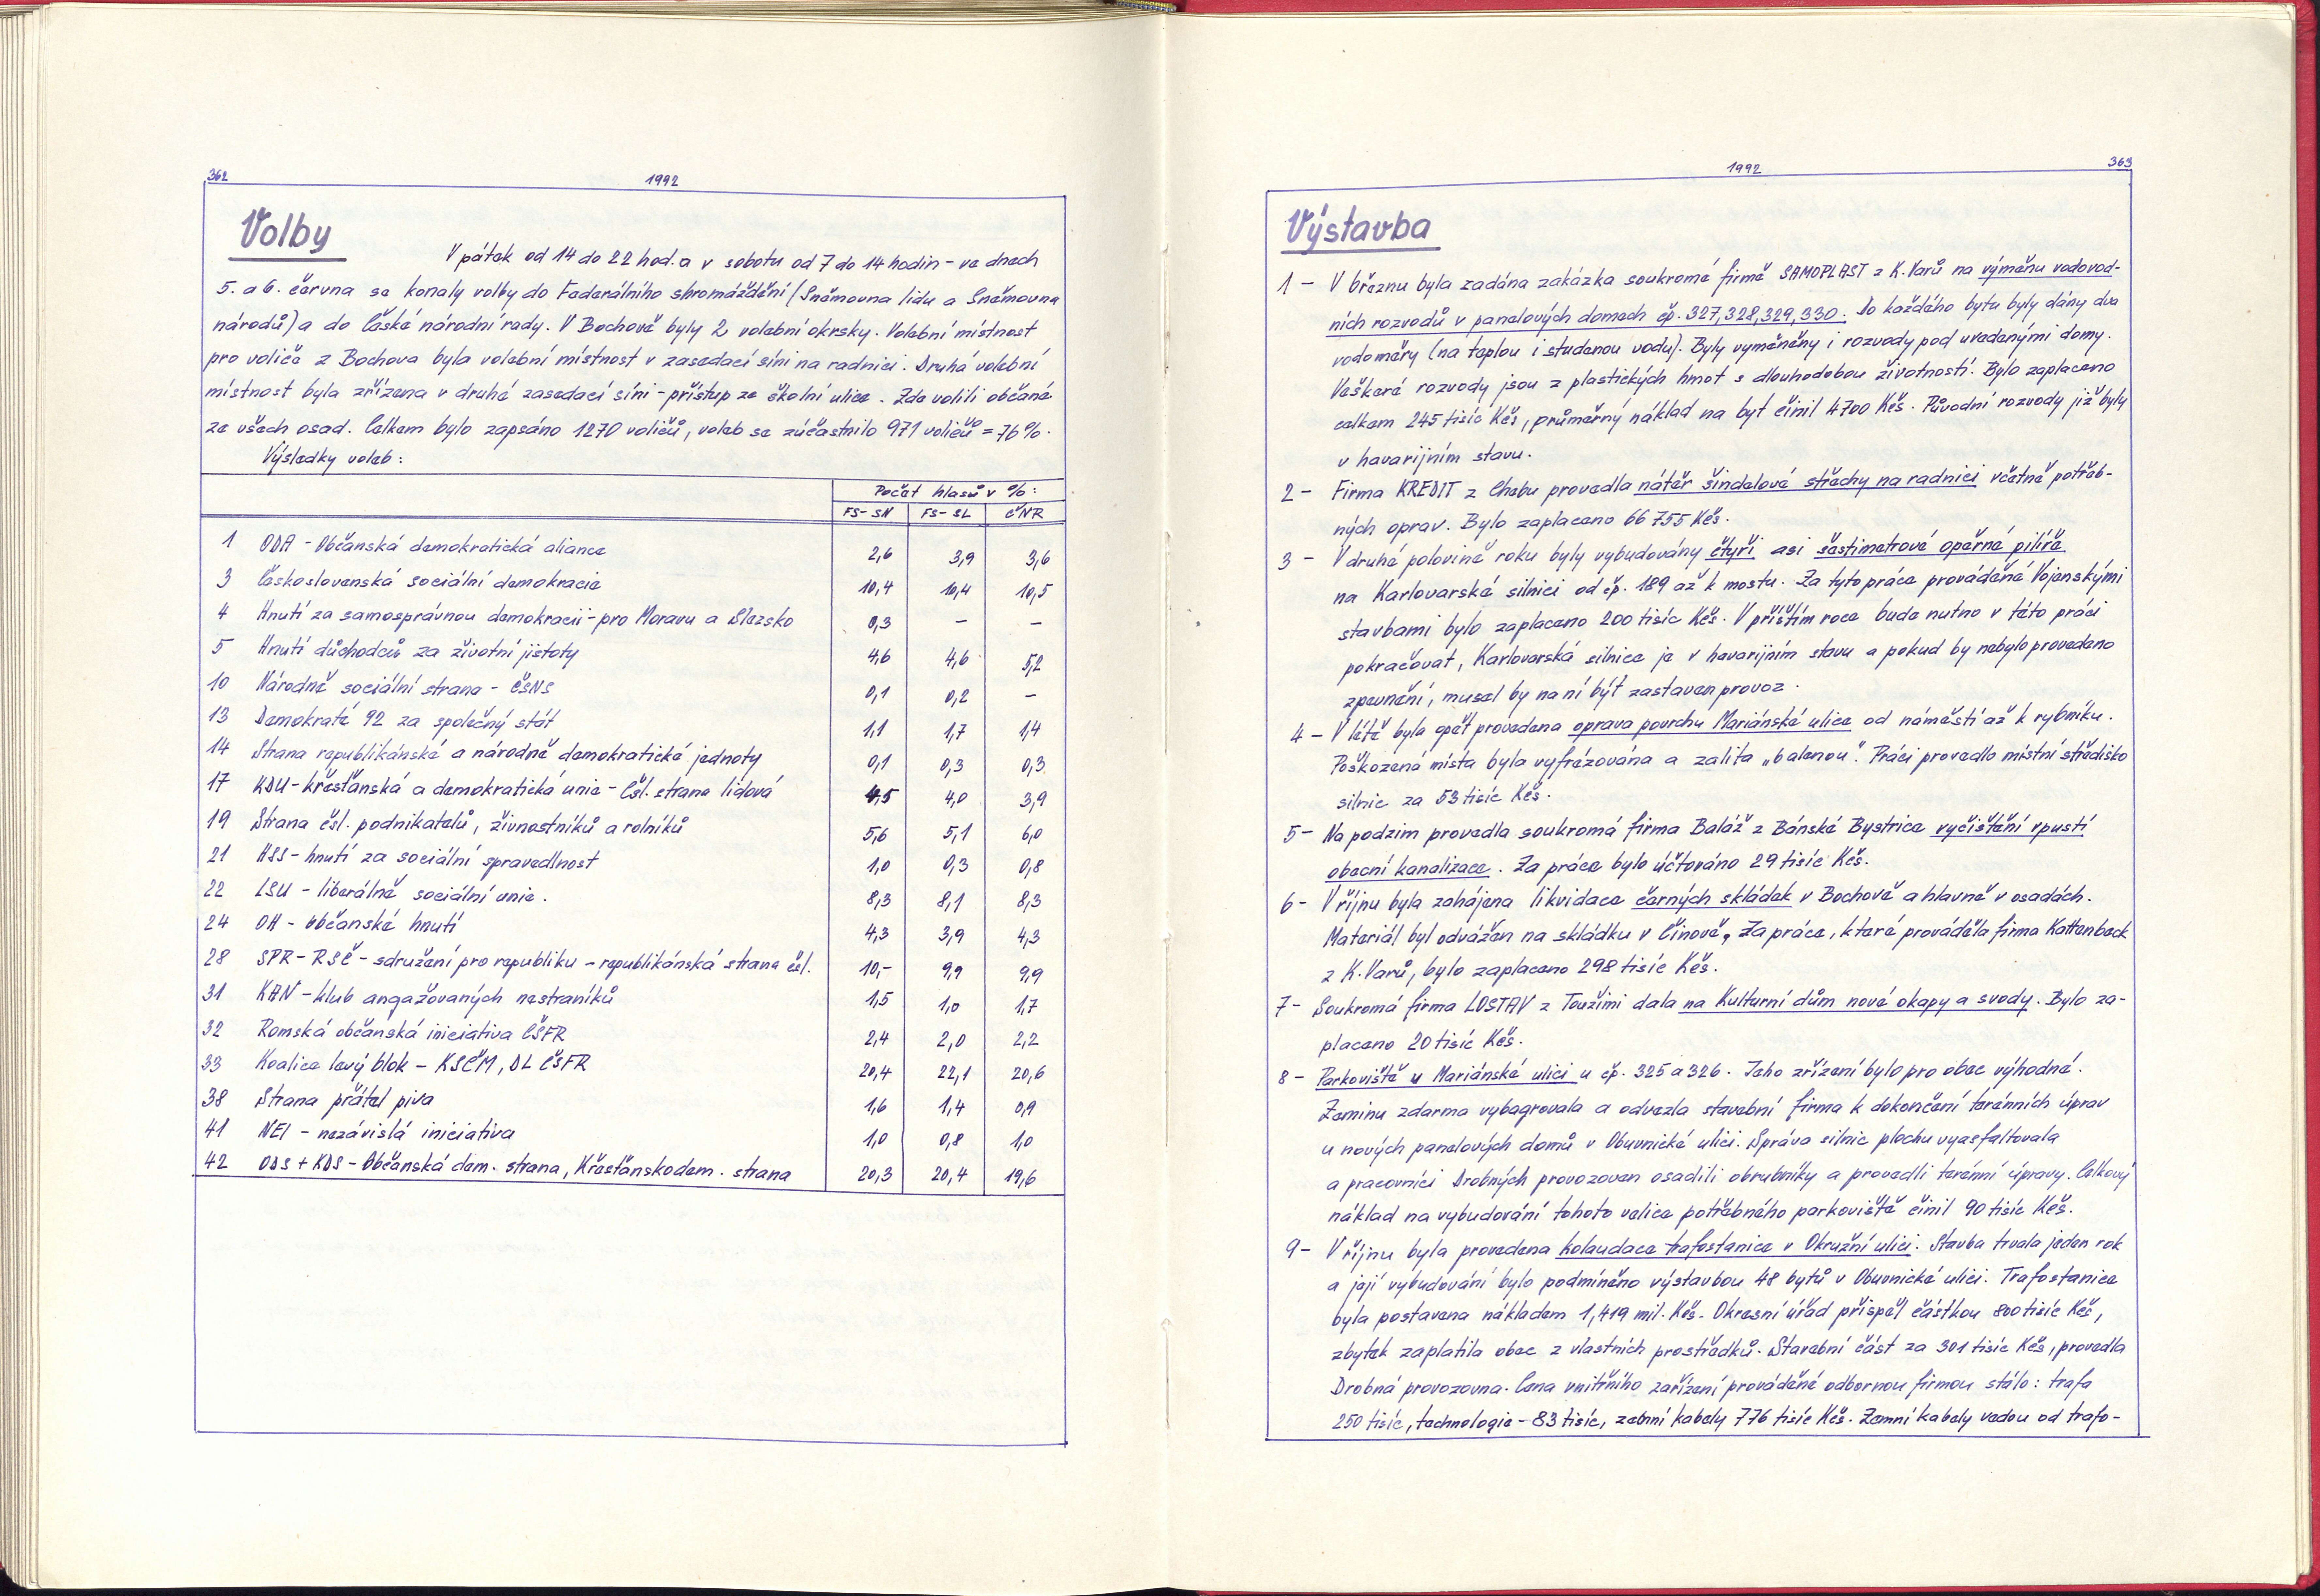 362
1992
Volby
V pátek od 14 do 22 hod. a v sobotu od 7 do 14 hodin – ve dnech
5. a 6. června se konaly volby do Federálního shromáždění (Sněmovna lidu a Sněmovna
národů) a do České národní rady. V Bochově byly 2 volební okrsky. Volební místnost
pro voliče z Bochova byla volební místnost v zasedací síni na radnici. Druhá volební
místnost byla zřízena v druhé zasedací síni – přístup ze školní ulice. Zde volili občané
ze všech osad. Celkem bylo zapsáno 1270 voličů, voleb se zúčastnilo 971 voličů = 76%.
Výsledky voleb:
Počet hlasů v %:
FS-SN FS-SL ČNR
1 ODA – Občanská demokratická aliance 2,6 3,9 3,6
3 Československá sociální demokracie 10,4 10,4 10,5
4 Hnutí za samosprávnou demokracii – pro Moravu a Slezsko 0,3 – –
5 Hnutí důchodců za životní jistoty 4,6 4,6 5,2
10 Národně sociální strana – ČSNS 0,1 0,2 –
13 Demokraté 92 za společný stát 1,1 1,7 1,4
14 Strana republikánské a národně demokratické jednoty 0,1 0,3 0,3
17 KDU – křesťanská a demokratická unie – Čsl. strana lidová 4,5 4,0 3,9
19 Strana čsl. podnikatelů, živnostníků a rolníků 5,6 5,1 6,0
21 HSS – hnutí za sociální spravedlnost 1,0 0,3 0,8
22 LSU – liberálně sociální unie. 8,3 8,1 8,3
24 OH – občanské hnutí 4,3 3,9 4,3
28 SPR – RSČ – sdružení pro republiku – republikánská strana čsl. 10,– 9,9 9,9
31 KAN – klub angažovaných nestraníků 1,5 1,0 1,7
32 Romská občanská iniciativa ČSFR 2,4 2,0 2,2
33 Koalice levý blok – KSČM, DL ČSFR 20,4 22,1 20,6
38 Strana přátel piva 1,6 1,4 0,9
41 NEI – nezávislá iniciativa 1,0 0,8 1,0
42 ODS + KDS – Občanská dem. strana, Křesťanskodem. strana 20,3 20,4 19,6
1992
363
Výstavba
1 – V březnu byla zadána zakázka soukromé firmě SAMOPLAST z K. Varů na výměnu vodovod-
ních rozvodů v panelových domech čp. 327, 328, 329, 330. Do každého bytu byly dány dva
vodoměry (na teplou i studenou vodu). Byly vyměněny i rozvody pod uvedenými domy.
Veškeré rozvody jsou z plastických hmot s dlouhodobou životností. Bylo zaplaceno
celkem 245 tisíc Kčs, průměrný náklad na byt činil 4700 Kčs. Původní rozvody již byly
v havarijním stavu.
2 – Firma KREDIT z Chebu provedla nátěr šindelové střechy na radnici včetně potřeb-
ných oprav. Bylo zaplaceno 66 755 Kčs.
3 – V druhé polovině roku byly vybudovány čtyři asi šestimetrové opěrné pilíře
na Karlovarské silnici od čp. 189 až k mostu. Za tyto práce prováděné Vojenskými
stavbami bylo zaplaceno 200 tisíc Kčs. V příštím roce bude nutno v této práci
pokračovat, Karlovarská silnice je v havarijním stavu a pokud by nebylo provedeno
zpevnění, musel by na ní být zastaven provoz.
4 – V létě byla opět provedena oprava povrchu Mariánské ulice od náměstí až k rybníku.
Poškozená místa byla vyfrézována a zalita „balenou". Práci provedlo místní středisko
silnic za 53 tisíc Kčs.
5 – Na podzim provedla soukromá firma Baláž z Bánské Bystrice vyčištění vpustí
obecní kanalizace. Za práce bylo účtováno 29 tisíc Kčs.
6 – V říjnu byla zahájena likvidace černých skládek v Bochově a hlavně v osadách.
Materiál byl odvážen na skládku v Činově. Za práce, které prováděla firma Kattenbeck
z K. Varů, bylo zaplaceno 298 tisíc Kčs.
7 – Soukromá firma LOSTAV z Toužimi dala na Kulturní dům nové okapy a svody. Bylo za-
placeno 20 tisíc Kčs.
8 – Parkoviště v Mariánské ulici u čp. 325 a 326. Jeho zřízení bylo pro obec výhodné.
Zeminu zdarma vybagrovala a odvezla stavební firma k dokončení terénních úprav
u nových panelových domů v Obuvnické ulici. Správa silnic plochu vyasfaltovala
a pracovníci Drobných provozoven osadili obrubníky a provedli terénní úpravy. Celkový
náklad na vybudování tohoto velice potřebného parkoviště činil 90 tisíc Kčs.
9 – V říjnu byla provedena kolaudace trafostanice v Okružní ulici. Stavba trvala jeden rok
a její vybudování bylo podmíněno výstavbou 48 bytů v Obuvnické ulici. Trafostanice
byla postavena nákladem 1,419 mil. Kčs. Okresní úřad přispěl částkou 800 tisíc Kčs,
zbytek zaplatila obec z vlastních prostředků. Stavební část za 301 tisíc Kčs, provedla
Drobná provozovna. Cena vnitřního zařízení prováděné odbornou firmou stálo: trafo
250 tisíc, technologie – 83 tisíc, zemní kabely 776 tisíc Kčs. Zemní kabely vedou od trafo-